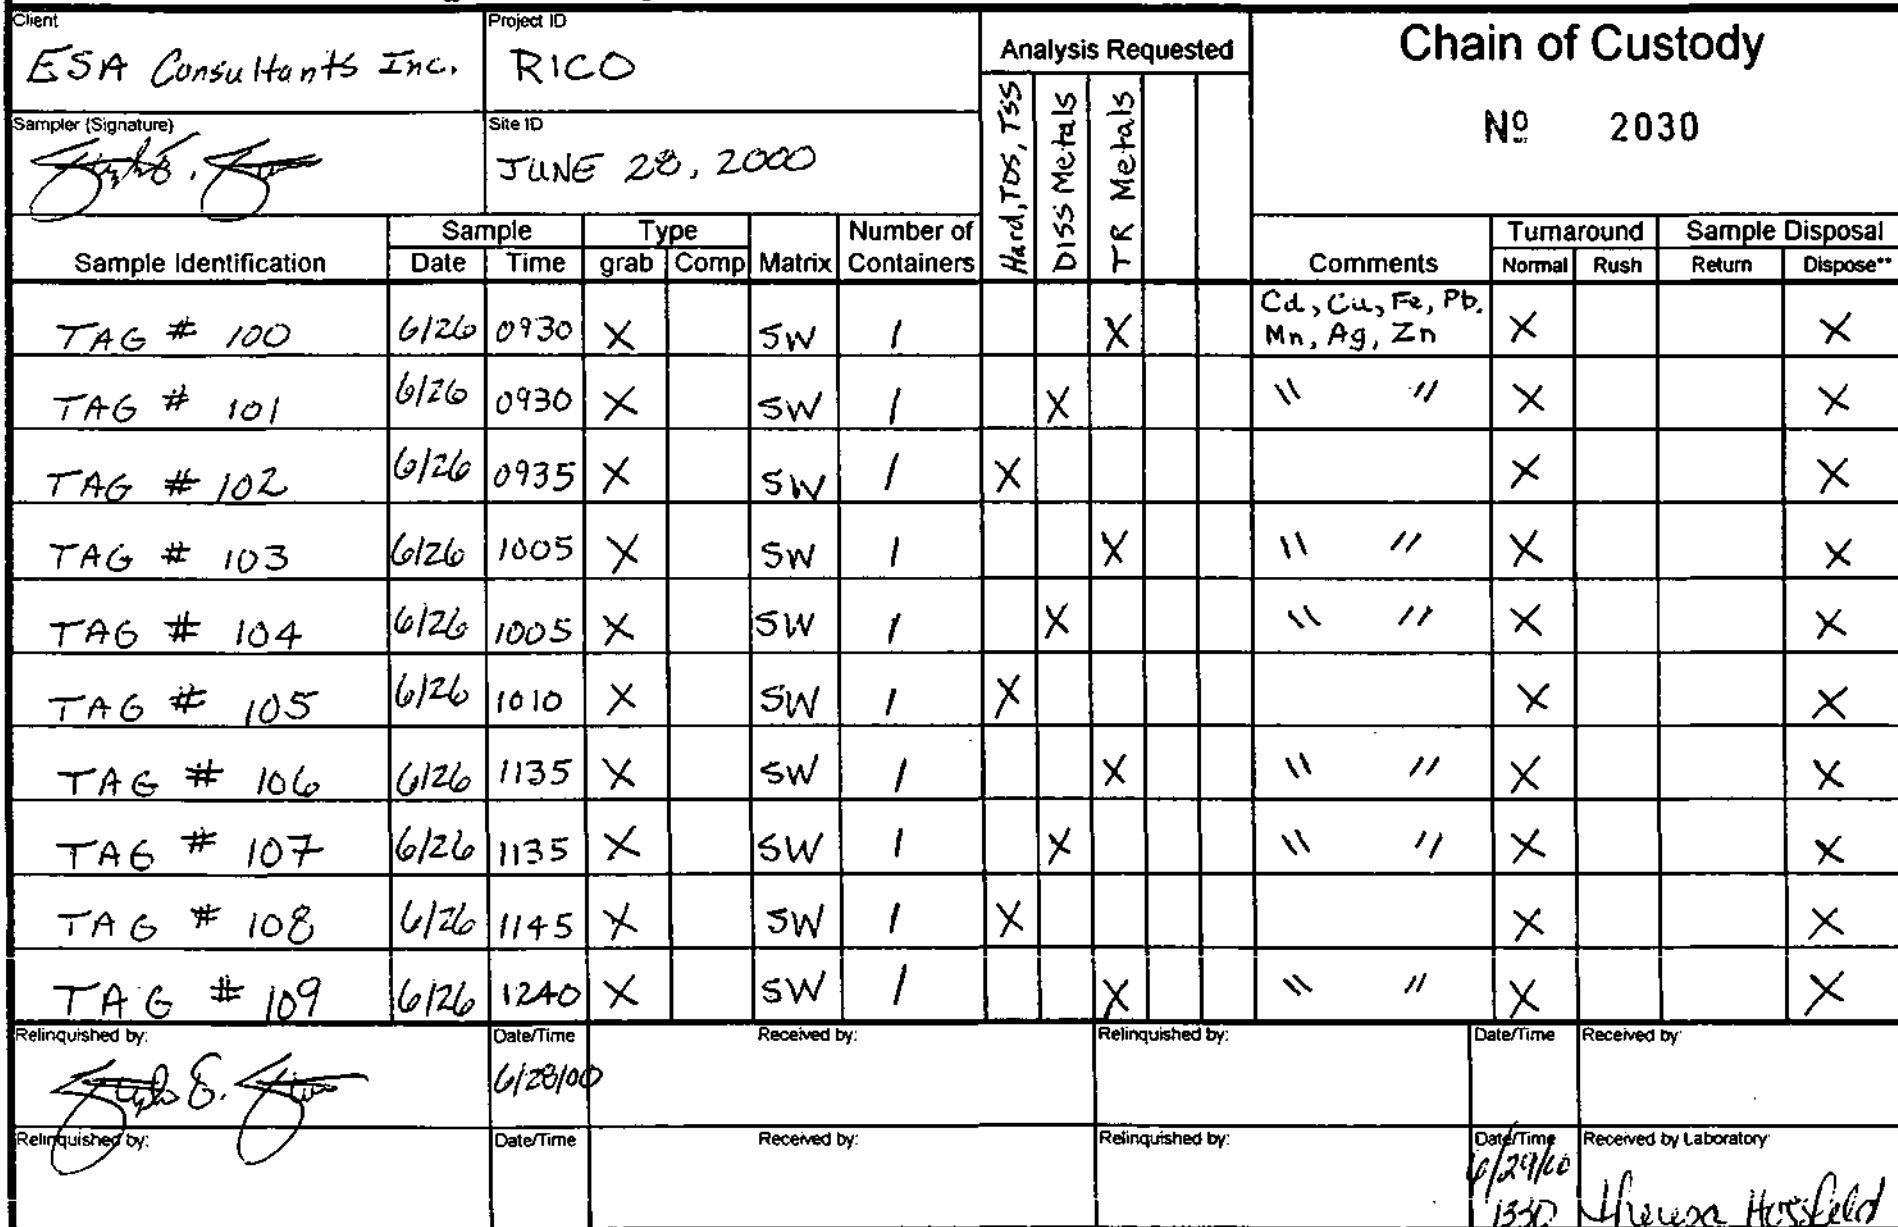 Client
ESA Consultants Inc.
Project ID
RICO
Analysis Requested
Chain of Custody
Nº 2030
Sampler (Signature)
Site ID
JUNE 28, 2000
Hard, TDS, TSS
DISS Metals
TR Metals
Sample Identification
Sample
Date Time
Type
grab Comp
Matrix
Number of
Containers
Comments
Turnaround
Normal Rush
Sample Disposal
Return Dispose**
TAG # 100 6/26 0930 X SW 1 X Cd, Cu, Fe, Pb, Mn, Ag, Zn X X
TAG # 101 6/26 0930 X SW 1 X " " X X
TAG # 102 6/26 0935 X SW 1 X X X
TAG # 103 6/26 1005 X SW 1 X " " X X
TAG # 104 6/26 1005 X SW 1 X " " X X
TAG # 105 6/26 1010 X SW 1 X X X
TAG # 106 6/26 1135 X SW 1 X " " X X
TAG # 107 6/26 1135 X SW 1 X " " X X
TAG # 108 6/26 1145 X SW 1 X X X
TAG # 109 6/26 1240 X SW 1 X " " X X
Relinquished by:
Date/Time
6/28/00
Received by:
Relinquished by:
Date/Time
Received by
Relinquished by:
Date/Time
Received by:
Relinquished by:
Date/Time
6/29/00
1330
Received by Laboratory
Theresa Hossfeld